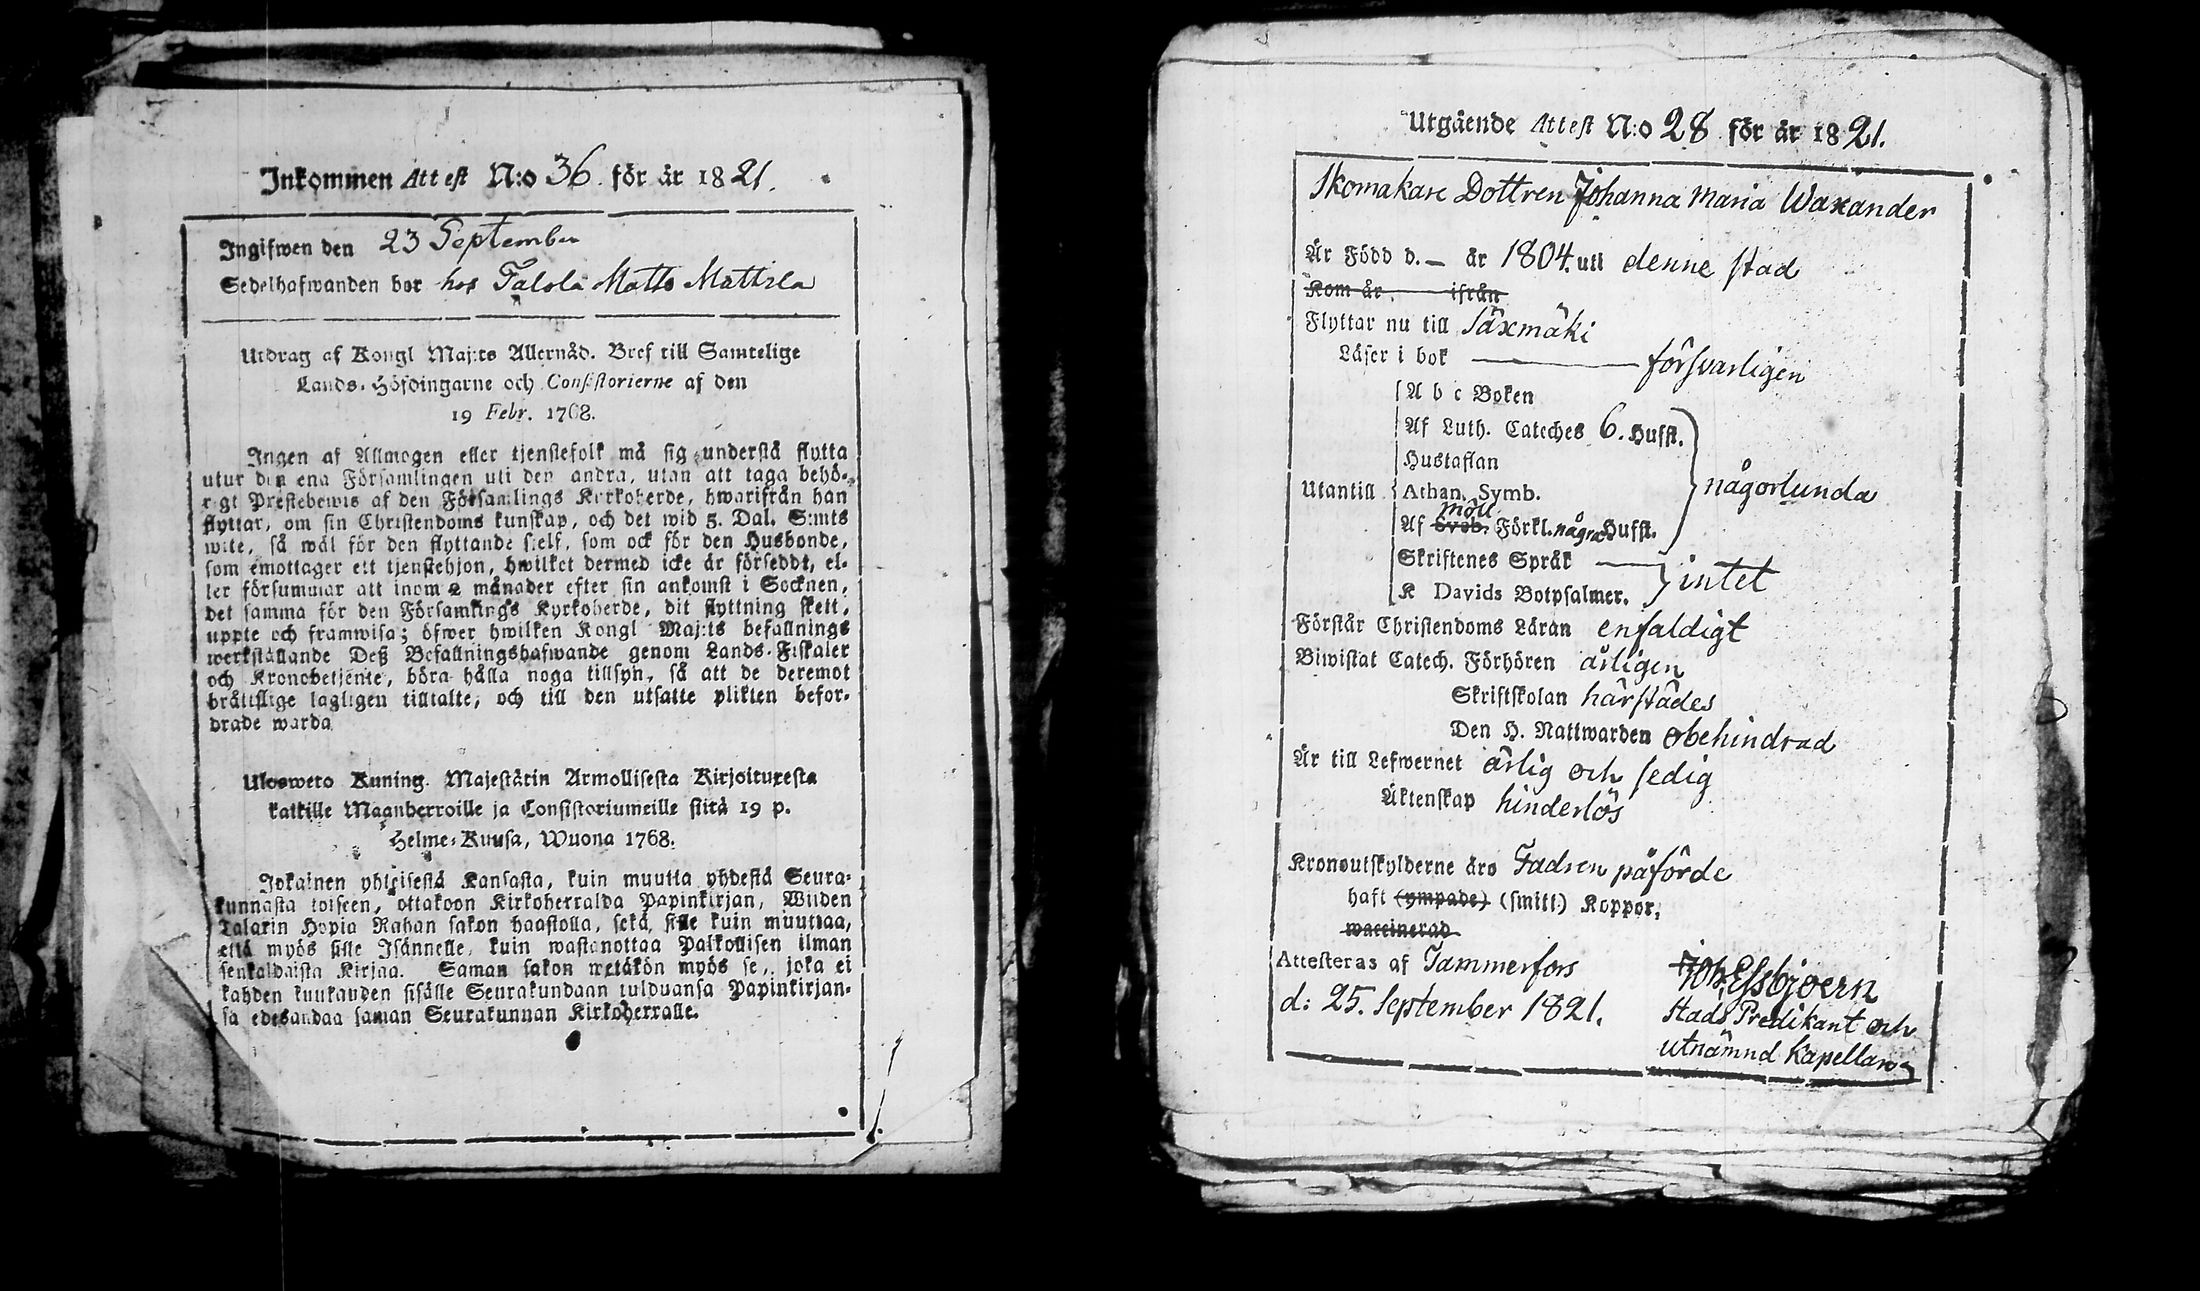 Inkommen Attest N:o 36 för år 1821.
Ingifwen den 23 September
Sedelhafwanden bor hos Talola Matts Mattila
Utdrag af Kongl Maj:ts Allernåd. Bref till Samtelige
Lands-Höfdingarne och Consistorierne af den
19 Febr. 1768.
Ingen af Allmogen eller tjenstefolk må sig understå flytta
utur den ena Församlingen uti den andra, utan att taga behö-
rigt Prestebewis af den Församlings Kyrkoherde, hwarifrån han
flyttar, om sin Christendoms kunskap, och det wid 5. Dal. S:mts
wite, så wäl för den flyttande sjelf, som ock för den Husbonde,
som emottager ett tjenstehjon, hwilket dermed icke är försedt, el-
ler försummar att inom 2 månader efter sin ankomst i Socknen,
det samma för den Församlings Kyrkoherde, dit flyttning skett,
uppte och framwisa; öfwer hwilken Kongl Maj:ts befallnings
werkställande Deß Befallningshafwande genom Lands-Fiskaler
och Kronobetjente, böra hålla noga tillsyn, så att de deremot
bråttslige lagligen tilltalte, och till den utsatte plikten befor-
drade warda
Ulosweto Kuning. Majestätin Armollisesta Kirjoituxesta
kaikille Maanherroille ja Consistoriumeille siitä 19 p.
Helme-Kuusa, Wuona 1768.
Jokainen yhteisestä Kansasta, kuin muutta yhdestä Seura-
kunnasta toiseen, ottakoon Kirkoherralda Papinkirjan, Wiiden
Talarin Hopia Rahan sakon haastolla, sekä sille kuin muuttaa,
että myös sille Isännelle, kuin wastanottaa Palkollisen ilman
senkaldaista Kirjaa. Saman sakon wetäkön myös se, joka ei
kahden kuukauden sisälle Seurakundaan tulduansa Papinkirjan-
sa edesandaa saman Seurakunnan Kirkoherralle.
Utgående Attest N:o 28 för år 1821.
Skomakare Dottren Johanna Maria Waxander
Är Född d. – år 1804. uti denne stad
Kom år. ifrån
Flyttar nu till Säxmäki
Läser i bok försvarligen
A b c Boken
Af Luth. Cateches 6. Hufst.
Hustaflan
Utantill Athan. Symb. någorlunda
möll
Af Sveb. Förkl. några Hufst.
Skriftenes Språk
intet
K Davids Botpsalmer.
Förstår Christendoms Läran enfaldigt
Biwistat Catech. Förhören årligen
Skriftskolan härstädes
Den H. Nattwarden obehindrad
Är till Lefwernet ärlig och sedig
Äktenskap hinderlös
Kronoutskylderne äro Fadren påförde
haft (ympade) (smitt.) Koppor.
waccinerad
Attesteras af Tammerfors
Joh. Essbjoern
d: 25. September 1821.
Stads Predikant och
utnämnd Kapellan